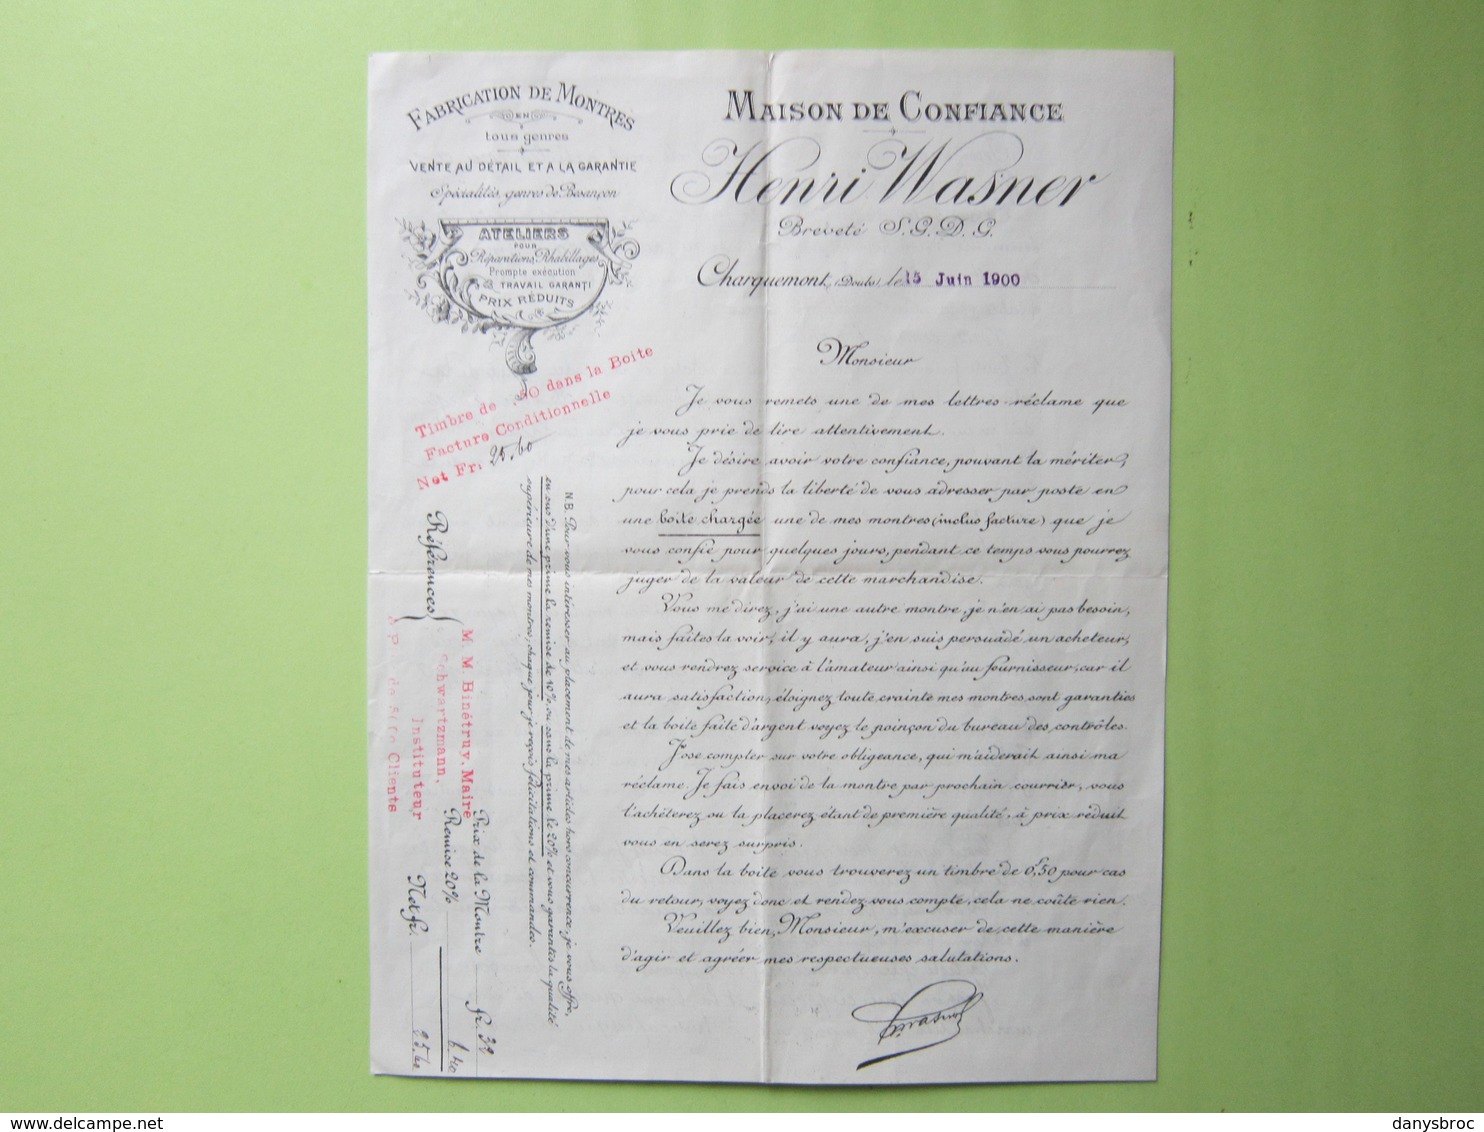 FABRICATION DE MONTRES
EN
tous genres
VENTE AU DÉTAIL ET A LA GARANTIE
Spécialités, genres de Besançon
ATELIERS
POUR
Réparations, Rhabillages
Prompte exécution
TRAVAIL GARANTI
PRIX RÉDUITS
MAISON DE CONFIANCE
Henri Wasner
Breveté S.G.D.G.
Charquemont, (Doubs) le 15 Juin 1900
Timbre de dans la Boite
Facture Conditionnelle
Net Fr: 25.60
Monsieur
Je vous remets une de mes lettres-réclame que
je vous prie de lire attentivement.
Je désire avoir votre confiance, pouvant la mériter,
pour cela je prends la liberté de vous adresser par poste en
une boîte chargée une de mes montres (inclus facture) que je
vous confie pour quelques jours, pendant ce temps vous pourrez
juger de la valeur de cette marchandise.
Vous me direz, j'ai une autre montre, je n'en ai pas besoin,
mais faites la voir, il y aura, j'en suis persuadé un acheteur,
et vous rendrez service à l'amateur ainsi qu'au fournisseur, car il
aura satisfaction, éloignez toute crainte mes montres sont garanties
et la boite faite d'argent voyez le poinçon du bureau des contrôles.
J'ose compter sur votre obligeance, qui m'aiderait ainsi ma
réclame. Je fais envoi de la montre par prochain courrier, vous
l'achèterez ou la placerez étant de première qualité, à prix réduit
vous en serez surpris.
Dans la boite vous trouverez un timbre de 0f,50 pour cas
du retour, voyez donc et rendez vous compte, cela ne coûte rien.
Veuillez bien, Monsieur, m'excuser de cette manière
d'agir et agréer mes respectueuses salutations.
N.B. Pour vous intéresser au placement de mes articles hors concurrence, je vous offre,
en sus d'une prime la remise de 10%, ou sans la prime le 20% et vous garantis la qualité
supérieure de mes montres; chaque jour je reçois félicitations et commandes.
Références
M. M. Binétruy, Maire
Schwartzmann,
Instituteur
de 500 Clients
Prix de la Montre fr. 32
Remise 20% 6.40
Net fr. 25.60
delcampe.net
danysbroc